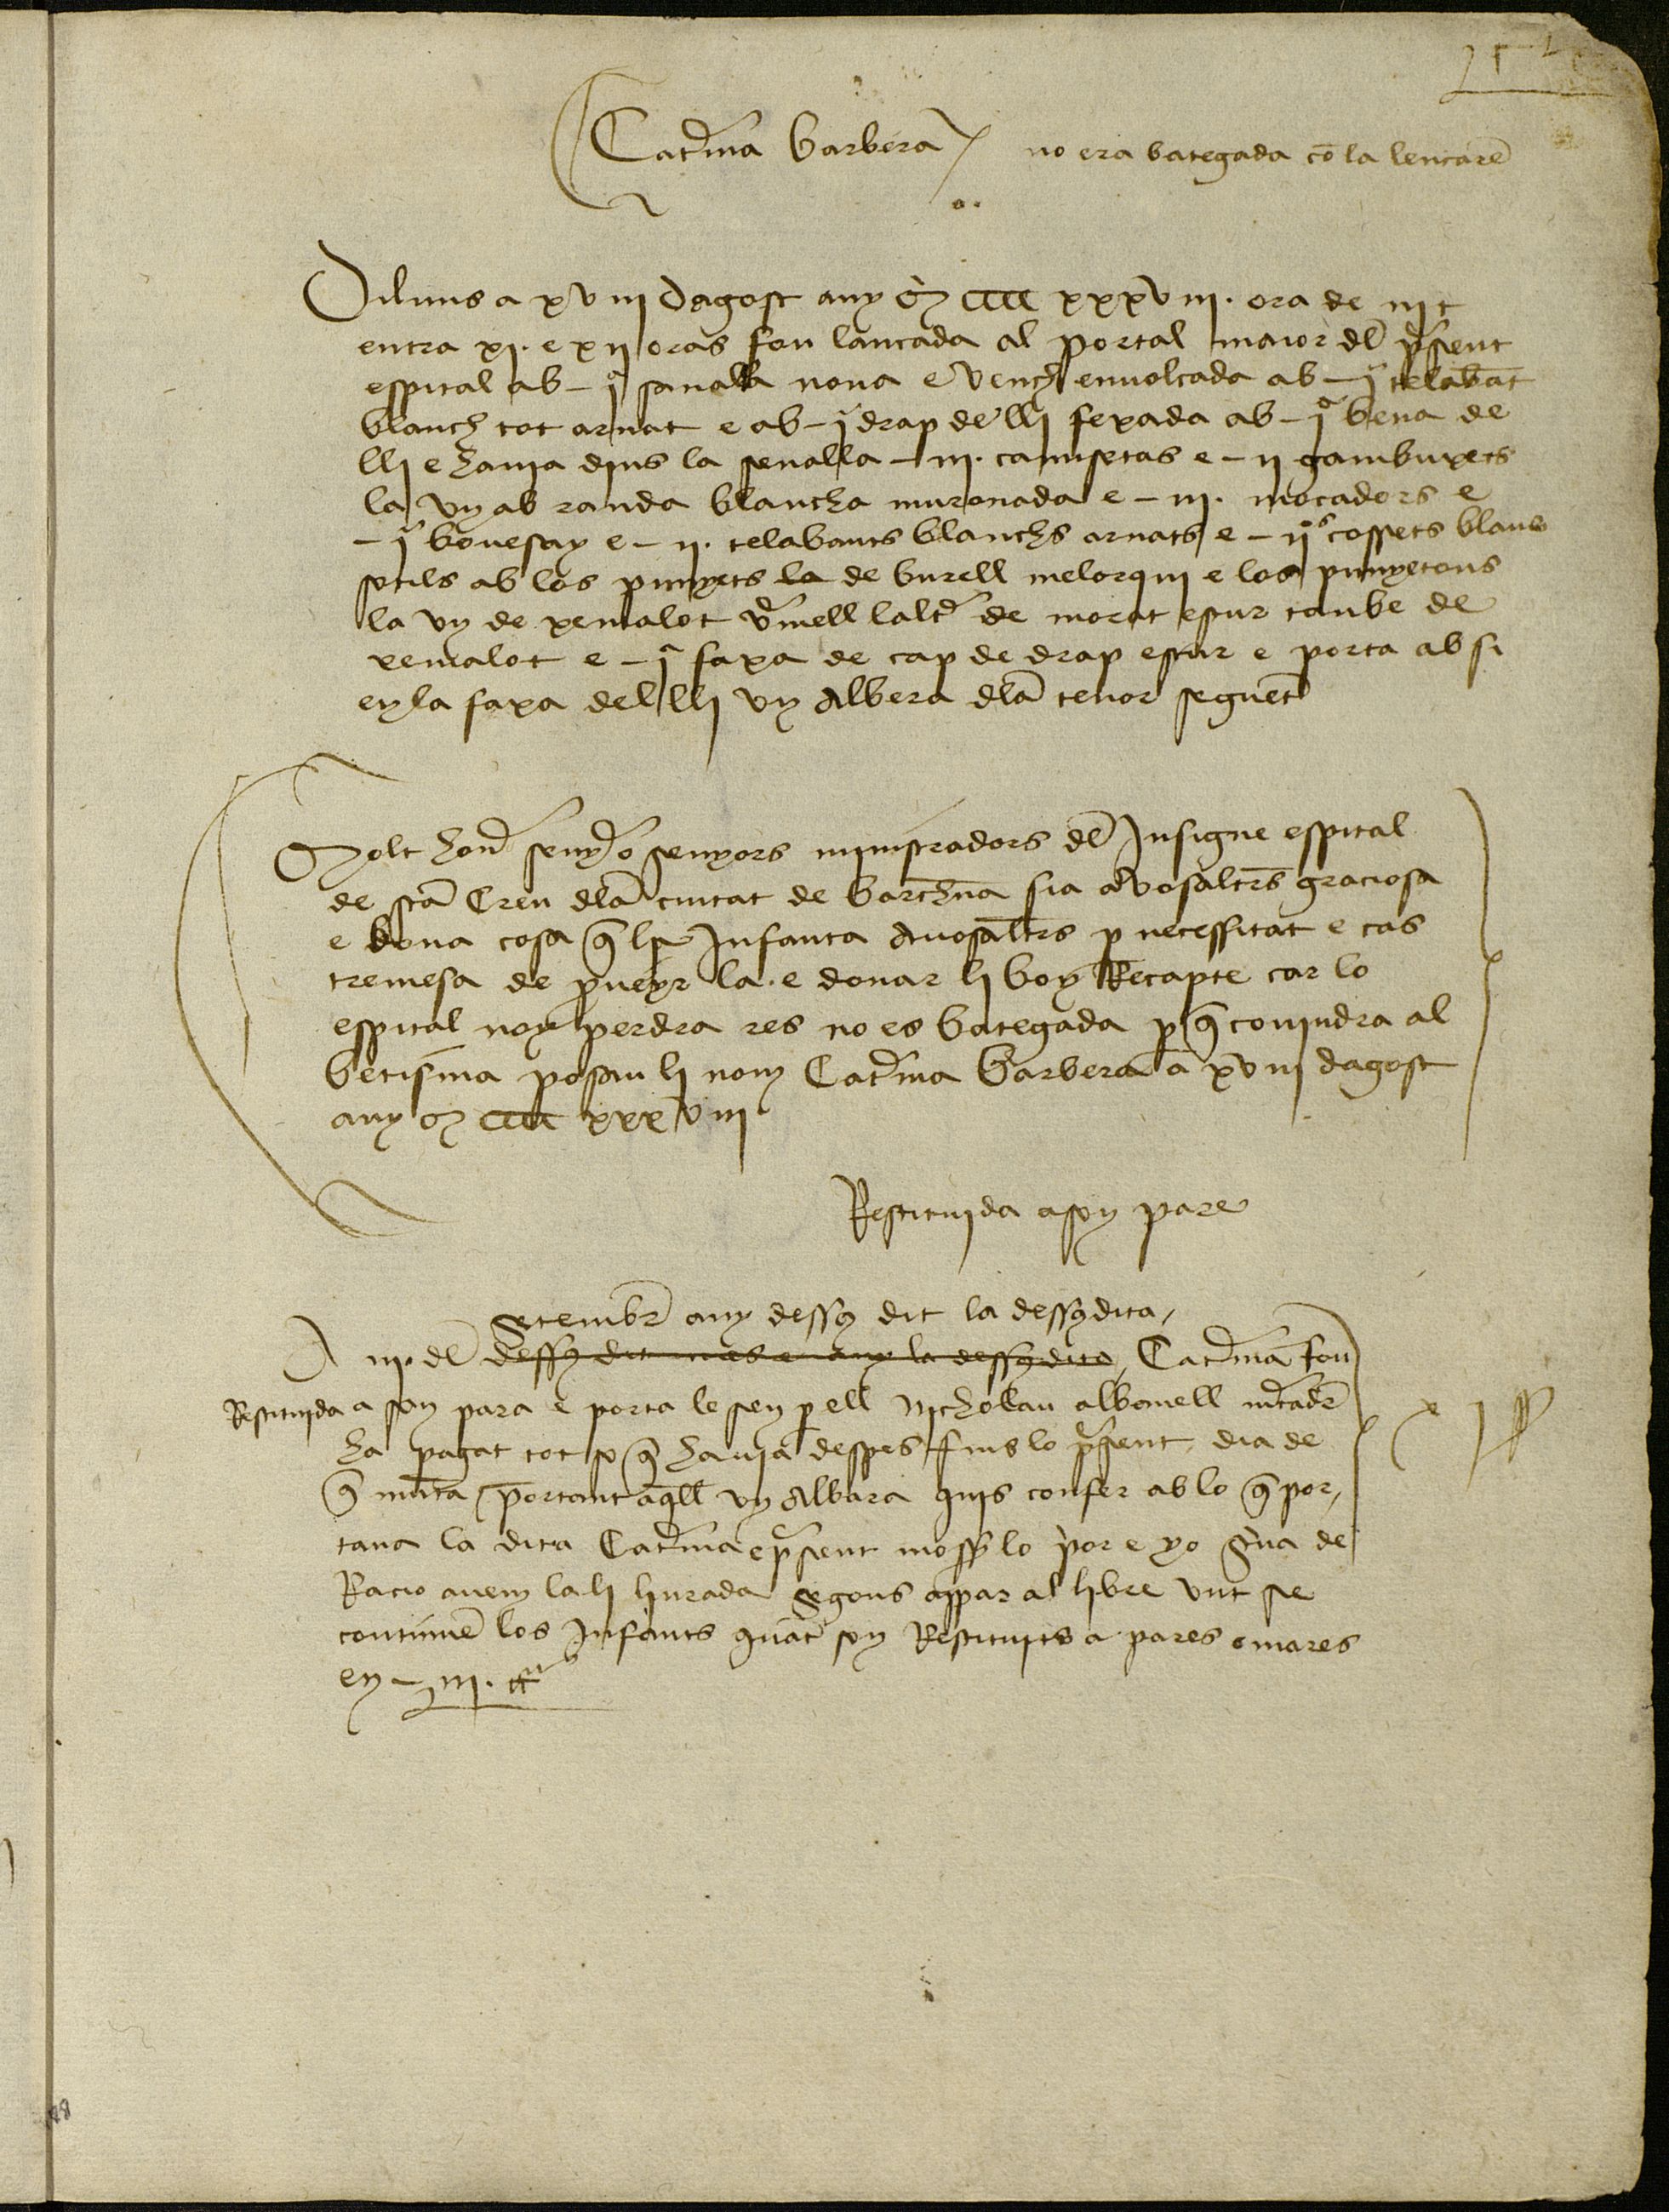 Cat'ina Barbera no era bategada co la lencare
Diluns a xviii dagost any M cccc xxxviii. ora de nit
entra xi. e xii oras fon lancada al portal maior dl p'sent
espital ab - iª sanalla nova e vench envolcada ab - i telabāt
blanch tot arnat e ab - i drap de lli fexada ab - iª bena de
lli e havia dins la senalla - iii. camisetas e - ii gambuxets
la vn ab randa blancha muronada e - iii. mocadors e
- i bovesay e - ii. telabants blanchs arnats e - iios cossets blaus
sotils ab los punyets la de burell melorqui e los punyetons
la vn de xemalot v'mell lalt' de morat escur tanbe de
xemalot e - iª faxa de cap de drap escur e porta ab si
en la faxa del lli vn albera dla tenor seguet
Molt hon senyer o senyors ministradors dl Insigne espital
de sta Creu dla ciutat de barchna sia a vosaltrs graciosa
e bona cosa q la Infanta a vosaltrs p necessitat e cas
tremesa de pveyr la. e donar li bon Recapte car lo
espital noy perdra res no es bategada p q covindra al
betisma posau li nom Cat'ina Barbera a xviii dagost
any M cccc xxxviii
Restituida a son pare
setembr any dessus dit la dessusdita,
A iii. dl dessus dit mes e any la dessusdita, Cat'ina fon
Restituida a son para e porta lesen p ell Nicholau albanell m'cadr
ha pagat tot so q havia despes fins lo p'sent dia de
q munta portant aqll vn albara quis confer ab lo q por,
tava la dita Cat'ina e p'sent mossen lo p'or e yo sc'va de
Racio avem la li liurada segons appar al libre vnt se
continue los Infants quāt son Restituits a pares o mares
en - iii. ctes